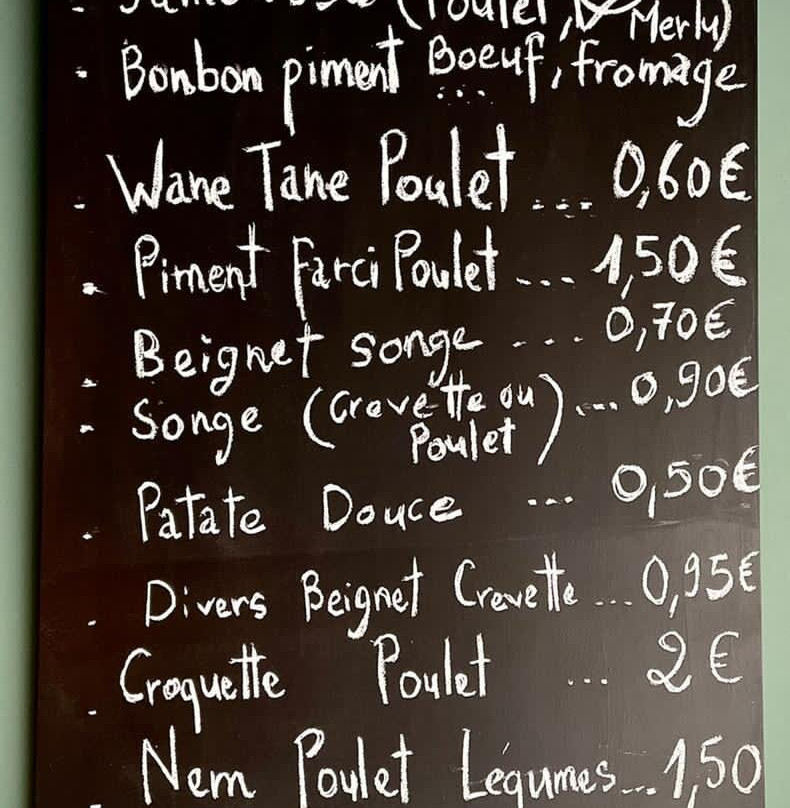 (Poulet, Merlu)
- Bonbon piment Boeuf, fromage
...
- Wane Tane Poulet .... 0,60€
- Piment Farci Poulet .... 1,50€
- Beignet songe .... 0,70€
- Songe (Crevette ou Poulet) .... 0,90€
- Patate Douce ... 0,50€
- Divers Beignet Crevette ... 0,95€
- Croquette Poulet ... 2€
- Nem Poulet Légumes ... 1,50